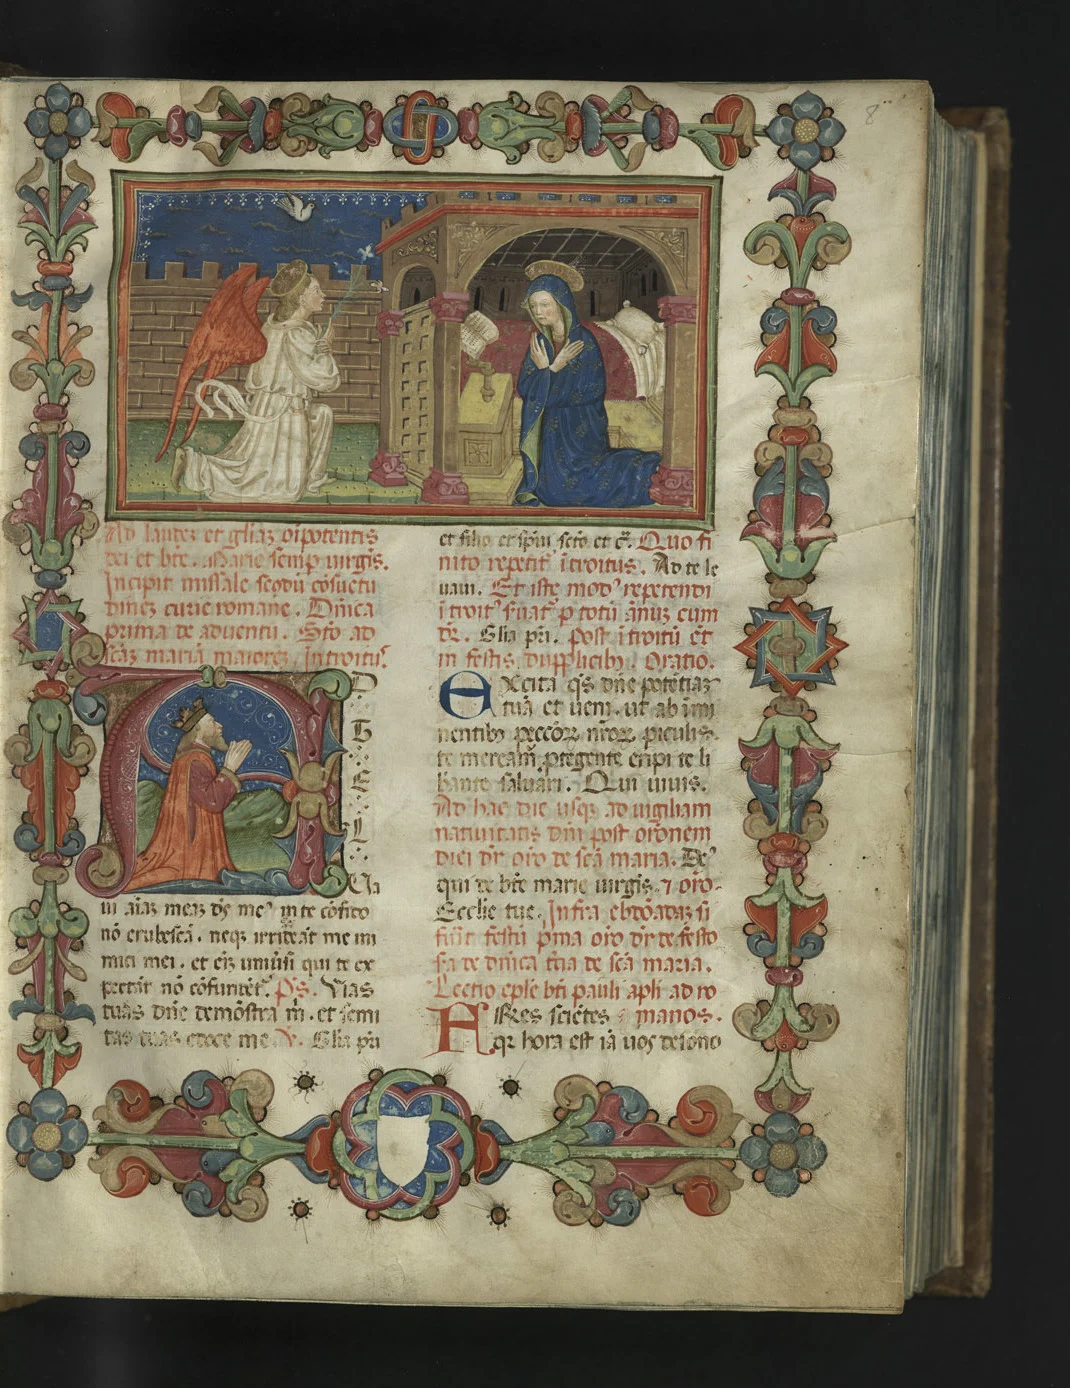 8
Ad laudeʒ et gl̄iaʒ oīpotentis
dei et bt̄e. Marie semꝑ uirgīs.
Incipit missale scd̄ū cōsuetu
dineʒ curie romane. Dn̄ica
prima de aduentu. Stō ad
scāʒ mariā maioreʒ. Introituꝰ
D
T
E
L
Ua
ui aīaʒ meaʒ dꝰ meꝰ in te cōfido
nō erubescā. neqꝫ irrideāt me ini
mici mei. et eīʒ uniūsi qui te ex
pectāt nō cōfundēt᷒. p̄s. Vias
tuas dn̄e demōstra m̄. et semi
tas tuas edoce me. ℣. Gl̄ia pr̄i
et filio et sp̄ui sct̄o et c̄. Quo fi
nito repetit᷒ ītroitus. Ad te le
uaui. Et iste modꝰ repetendi
ītroit᷒ ſuat᷒ ꝑ totū ānuʒ cum
dr̄. Gl̄ia pr̄i. post ītroitū et
in festis dupplicibꝰ. Oratio.
EXcita q̄s dn̄e potētiaʒ
tuā et ueni. ut ab īmi
nentibꝰ peccōꝝ nr̄oꝝ piculis.
te meream᷒ ꝓtegente eripi te li
berante saluari. Qui uiuis.
Ad hac die usqꝫ ad uigiliam
natiuitatis dn̄i post orōnem
diei dr̄ oro de scā maria. Deꝰ
qui de bt̄e marie uirgīs. ⁊ oro.
Ecclie tue. Infra ebdōadaʒ si
fūit festū p̄ma oro dr̄ de festo
sa de dn̄ica t̄cia de scā maria.
Lectio epl̄e bt̄i pauli apl̄i ad ro
FRres sciētes manos.
qꝛ hora est iā uos de sōno